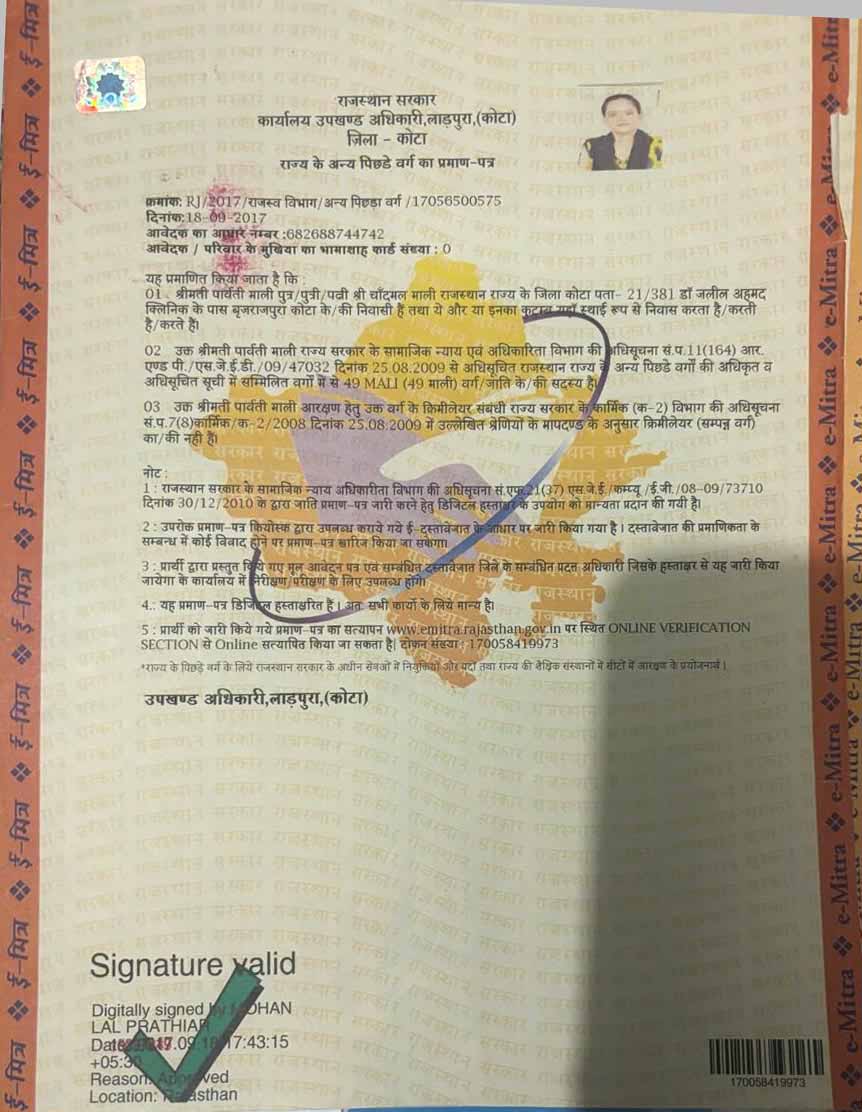 राजस्थान सरकार
कार्यालय उपखण्ड अधिकारी,लाड़पुरा,(कोटा)
ज़िला - कोटा
राज्य के अन्य पिछडे वर्ग का प्रमाण-पत्र
क्रमांक: RJ/2017/राजस्व विभाग/अन्य पिछड़ा वर्ग /17056500575
दिनांक:18-09-2017
आवेदक का आधार नम्बर :682688744742
आवेदक / परिवार के मुखिया का भामाशाह कार्ड संख्या : 0
यह प्रमाणित किया जाता है कि :
01 . श्रीमती पार्वती माली पुत्र/पुत्री/पत्नी श्री चाँदमल माली राजस्थान राज्य के जिला कोटा पता- 21/381 डॉ जलील अहमद
क्लिनिक के पास बृजराजपुरा कोटा के/की निवासी हैं तथा ये और या इनका कुटुम्ब यहाँ स्थाई रूप से निवास करता है/करती
है/करते हैं।
02 . उक्त श्रीमती पार्वती माली राज्य सरकार के सामाजिक न्याय एवं अधिकारिता विभाग की अधिसूचना सं.प.11(164) आर.
एण्ड पी./एस.जे.ई.डी./09/47032 दिनांक 25.08.2009 से अधिसूचित राजस्थान राज्य के अन्य पिछडे वर्गो की अधिकृत व
अधिसूचित सूची में सम्मिलित वर्गो में से 49 MALI (49 माली) वर्ग/जाति के/की सदस्य है।
03 . उक्त श्रीमती पार्वती माली आरक्षण हेतु उक्त वर्ग के क्रिमीलेयर संबंधी राज्य सरकार के कार्मिक (क-2) विभाग की अधिसूचना
सं.प.7(8)कार्मिक/क-2/2008 दिनांक 25.08.2009 में उल्लेखित श्रेणियों के मापदण्ड के अनुसार क्रिमीलेयर (सम्पन्न वर्ग)
का/की नही हैं।
नोट :
1 : राजस्थान सरकार के सामाजिक न्याय अधिकारीता विभाग की अधिसूचना सं.एफ.21(37) एस.जे.ई./कम्प्यू /ई.जी./08-09/73710
दिनांक 30/12/2010 के द्वारा जाति प्रमाण-पत्र जारी करने हेतु डिजिटल हस्ताक्षर के उपयोग को मान्यता प्रदान की गयी है।
2 : उपरोक्त प्रमाण-पत्र कियोस्क द्वारा उपलब्ध कराये गये ई-दस्तावेजात के आधार पर जारी किया गया है । दस्तावेजात की प्रमाणिकता के
सम्बन्ध में कोई विवाद होने पर प्रमाण-पत्र खारिज किया जा सकेगा।
3 : प्रार्थी द्वारा प्रस्तुत किये गए मूल आवेदन पत्र एवं सम्बंधित दस्तावेजात जिले के सम्बंधित प्रदत अधिकारी जिसके हस्ताक्षर से यह जारी किया
जायेगा के कार्यालय में निरीक्षण/परीक्षण के लिए उपलब्ध होंगे।
4.: यह प्रमाण-पत्र डिजिटल हस्ताक्षरित हैं । अतः सभी कार्यो के लिये मान्य है।
5 : प्रार्थी को जारी किये गये प्रमाण-पत्र का सत्यापन www.emitra.rajasthan.gov.in पर स्थित ONLINE VERIFICATION
SECTION से Online सत्यापित किया जा सकता है| टोकन संख्या : 170058419973
*राज्य के पिछड़े वर्ग के लिये राजस्थान सरकार के अधीन सेवओं में नियुक्तियों और पदों तथा राज्य की शैक्षिक संस्थानों में सीटों में आरक्षण के प्रयोजनार्थ |
उपखण्ड अधिकारी,लाड़पुरा,(कोटा)
Signature valid
Digitally signed by MOHAN
LAL PRATHIAR
Date: 2017.09.18 17:43:15
+05:30
Reason: Approved
Location: Rajasthan
170058419973
ई-मित्र ❖ ई-मित्र ❖ ई-मित्र ❖ ई-मित्र ❖ ई-मित्र ❖ ई-मित्र ❖ ई-मित्र ❖ ई-मित्र
e-Mitra ❖ e-Mitra ❖ e-Mitra ❖ e-Mitra ❖ e-Mitra ❖ e-Mitra ❖ e-Mitra ❖ e-Mitra